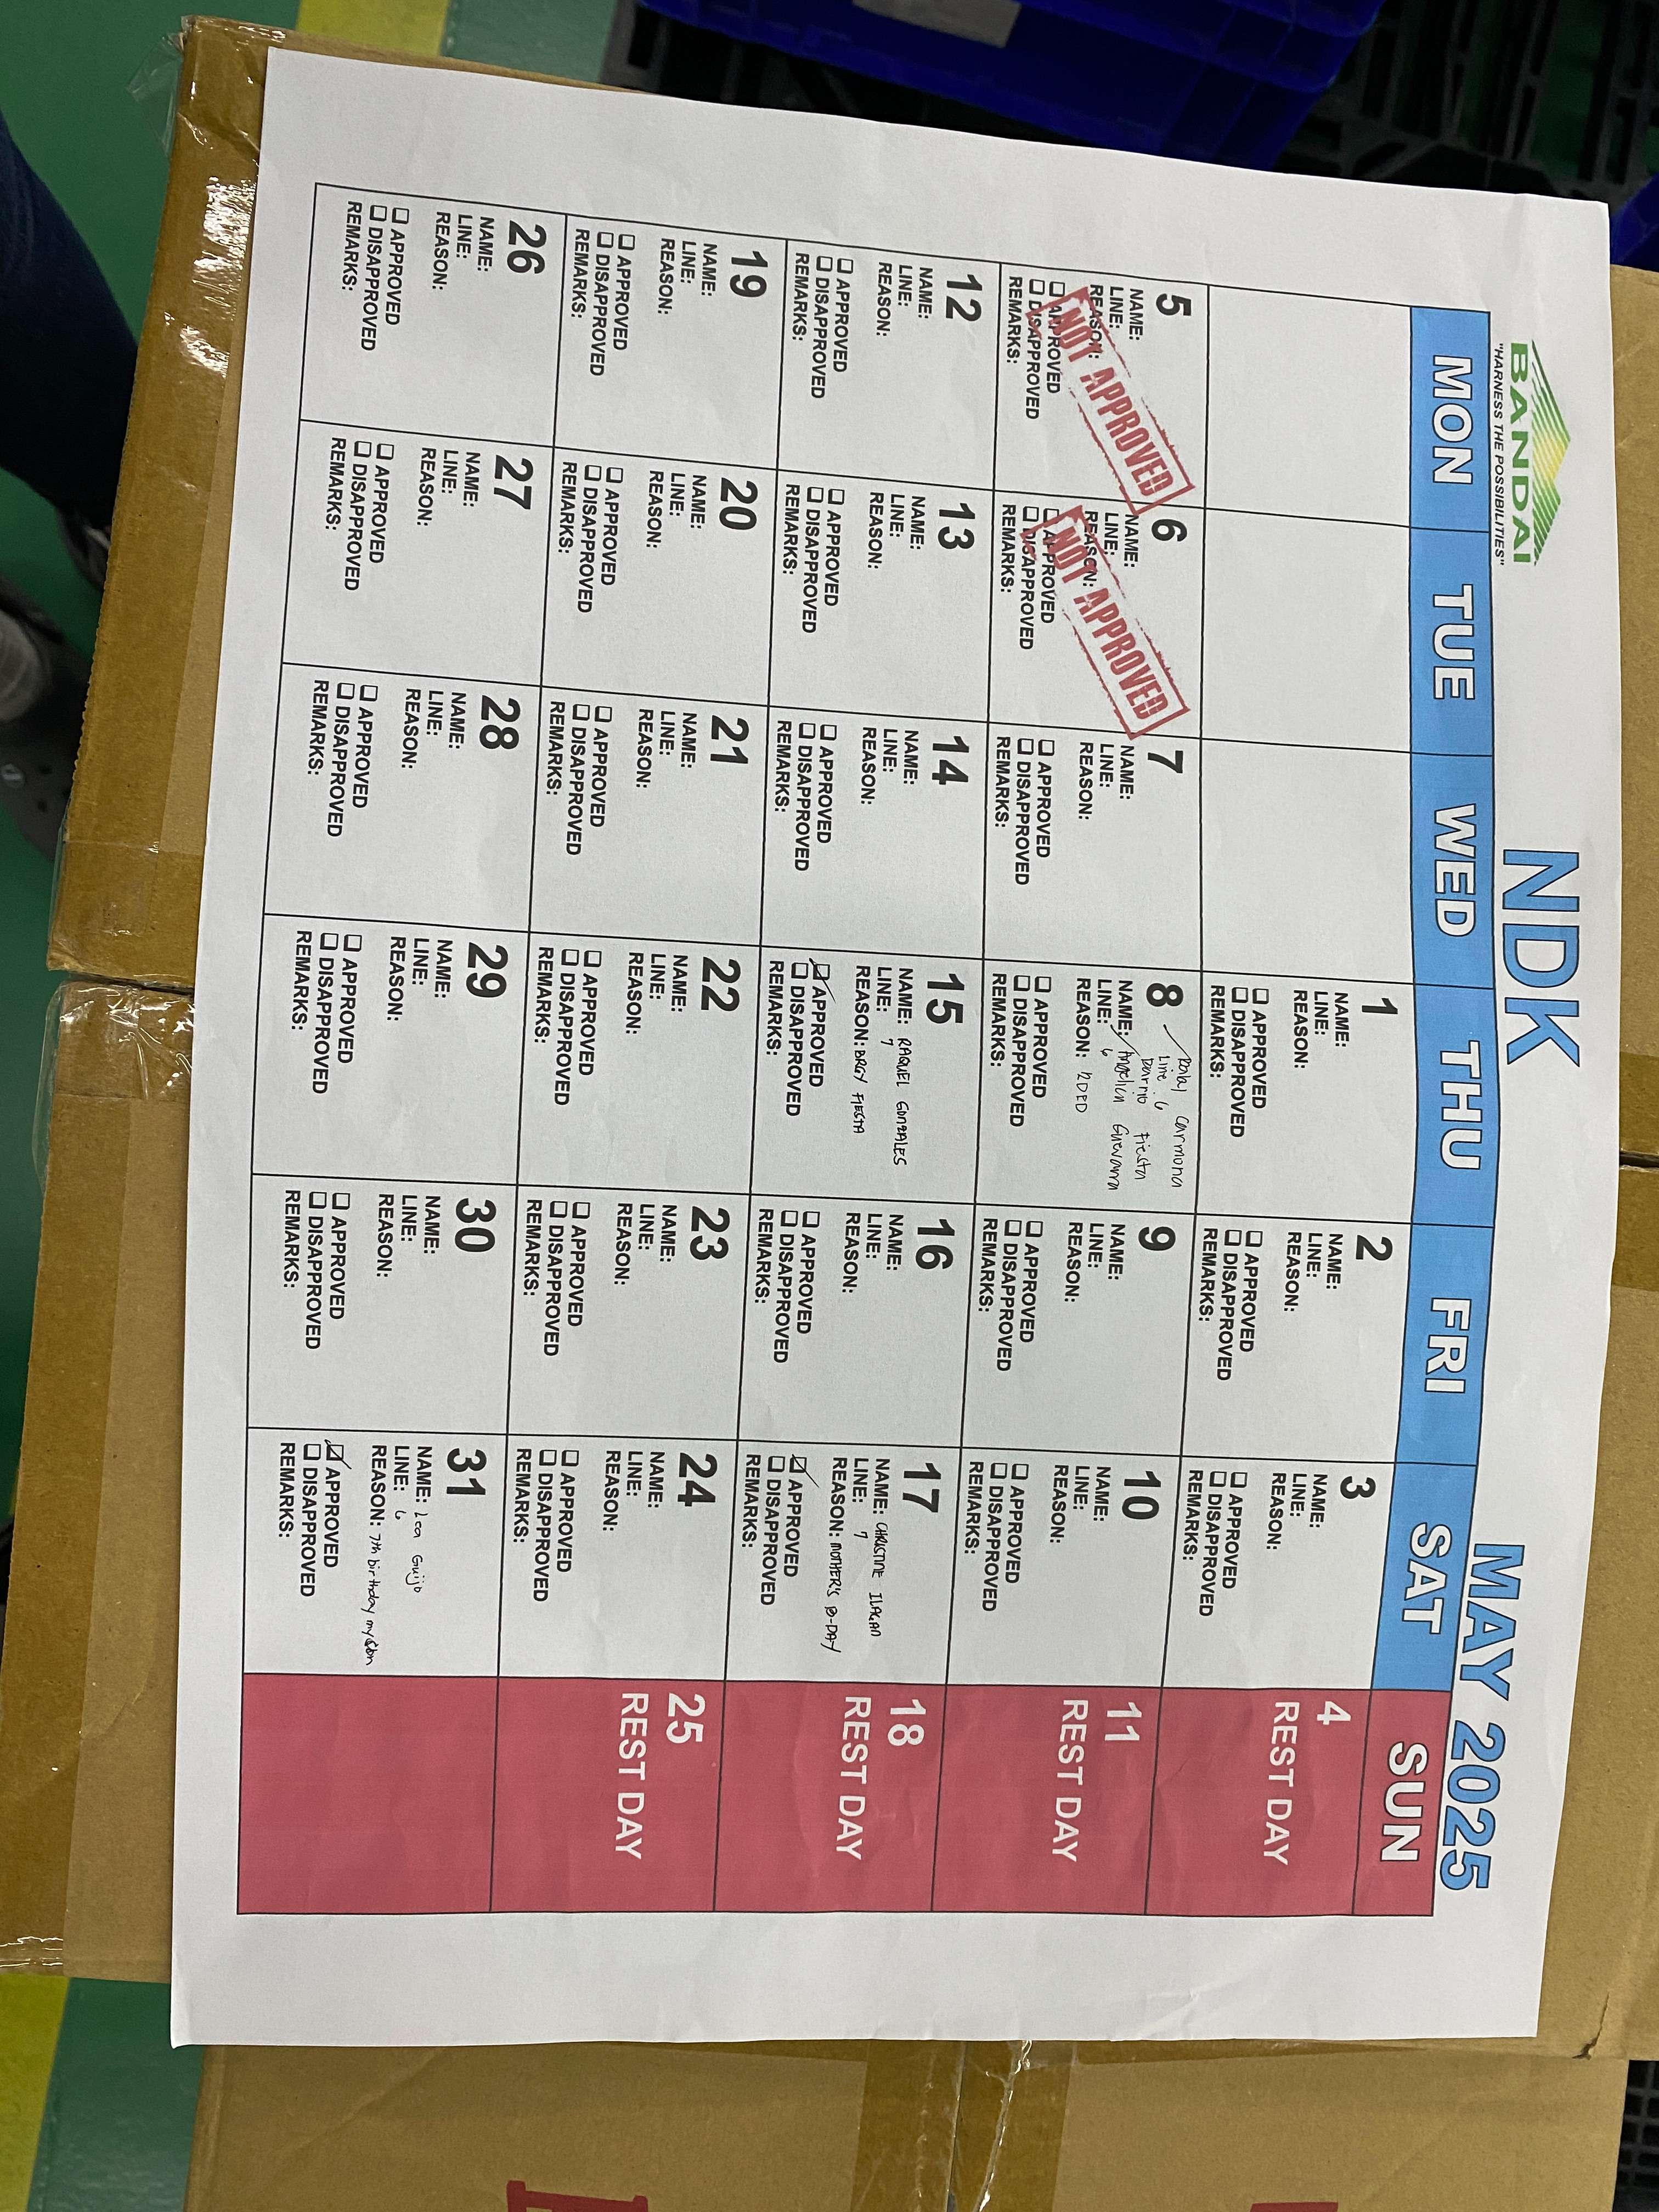 BANDAI
"HARNESS THE POSSIBILITIES"
NDK
MAY 2025
MON TUE WED THU FRI SAT SUN
1
NAME:
LINE:
REASON:
❑ APPROVED
❑ DISAPPROVED
REMARKS:
2
NAME:
LINE:
REASON:
❑ APPROVED
❑ DISAPPROVED
REMARKS:
3
NAME:
LINE:
REASON:
❑ APPROVED
❑ DISAPPROVED
REMARKS:
4
REST DAY
5
NAME:
LINE:
REASON:
❑ APPROVED
❑ DISAPPROVED
REMARKS:
NOT APPROVED
6
NAME:
LINE:
REASON:
❑ APPROVED
❑ DISAPPROVED
REMARKS:
NOT APPROVED
7
NAME:
LINE:
REASON:
❑ APPROVED
❑ DISAPPROVED
REMARKS:
8
Carmona
Line 6
Barrio Fiesta
NAME: Angelica Guevarra
LINE: 6
REASON:
❑ APPROVED
❑ DISAPPROVED
REMARKS:
9
NAME:
LINE:
REASON:
❑ APPROVED
❑ DISAPPROVED
REMARKS:
10
NAME:
LINE:
REASON:
❑ APPROVED
❑ DISAPPROVED
REMARKS:
11
REST DAY
12
NAME:
LINE:
REASON:
❑ APPROVED
❑ DISAPPROVED
REMARKS:
13
NAME:
LINE:
REASON:
❑ APPROVED
❑ DISAPPROVED
REMARKS:
14
NAME:
LINE:
REASON:
❑ APPROVED
❑ DISAPPROVED
REMARKS:
15
NAME: RAQUEL GONZALES
LINE: 7
REASON: BRGY FIESTA
☑ APPROVED
❑ DISAPPROVED
REMARKS:
16
NAME:
LINE:
REASON:
❑ APPROVED
❑ DISAPPROVED
REMARKS:
17
NAME: CHRISTINE ILAGAN
LINE: 7
REASON: MOTHER'S B-DAY
☑ APPROVED
❑ DISAPPROVED
REMARKS:
18
REST DAY
19
NAME:
LINE:
REASON:
❑ APPROVED
❑ DISAPPROVED
REMARKS:
20
NAME:
LINE:
REASON:
❑ APPROVED
❑ DISAPPROVED
REMARKS:
21
NAME:
LINE:
REASON:
❑ APPROVED
❑ DISAPPROVED
REMARKS:
22
NAME:
LINE:
REASON:
❑ APPROVED
❑ DISAPPROVED
REMARKS:
23
NAME:
LINE:
REASON:
❑ APPROVED
❑ DISAPPROVED
REMARKS:
24
NAME:
LINE:
REASON:
❑ APPROVED
❑ DISAPPROVED
REMARKS:
25
REST DAY
26
NAME:
LINE:
REASON:
❑ APPROVED
❑ DISAPPROVED
REMARKS:
27
NAME:
LINE:
REASON:
❑ APPROVED
❑ DISAPPROVED
REMARKS:
28
NAME:
LINE:
REASON:
❑ APPROVED
❑ DISAPPROVED
REMARKS:
29
NAME:
LINE:
REASON:
❑ APPROVED
❑ DISAPPROVED
REMARKS:
30
NAME:
LINE:
REASON:
❑ APPROVED
❑ DISAPPROVED
REMARKS:
31
NAME: Lea Guijo
LINE: 6
REASON: 7th birthday my son
☑ APPROVED
❑ DISAPPROVED
REMARKS: